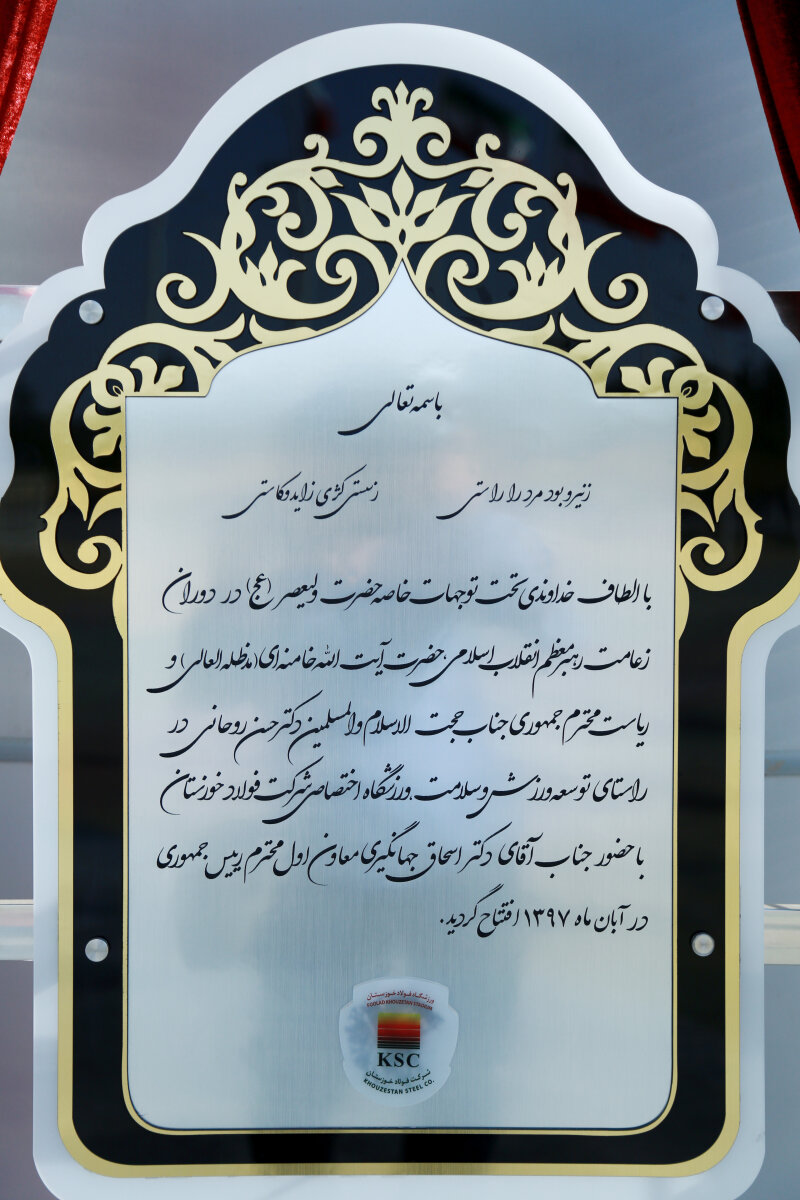 باسمه تعالی
ز نیرو بود مرد را راستی ز سستی کژی زاید و کاستی
با الطاف خداوندی تحت توجهات خاصه حضرت ولیعصر (عج) در دوران
زعامت رهبر معظم انقلاب اسلامی حضرت آیت الله خامنه‌ای (مدظله العالی) و
ریاست محترم جمهوری جناب حجت الاسلام والمسلمین دکتر حسن روحانی در
راستای توسعه ورزش و سلامت ورزشگاه اختصاصی شرکت فولاد خوزستان
با حضور جناب آقای دکتر اسحاق جهانگیری معاون اول محترم رییس جمهوری
در آبان ماه ۱۳۹۷ افتتاح گردید.
ورزشگاه فولاد خوزستان
FOOLAD KHOUZESTAN STADIUM
KSC
شرکت فولاد خوزستان
KHOUZESTAN STEEL CO.